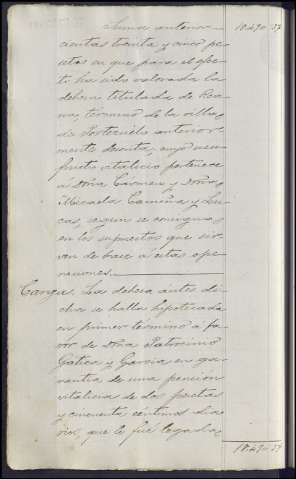 Suma anterior 18.490 37
cientas treinta y cinco pe-
setas en que para el efec-
to ha sido valorada la
dehesa titulada de
término de la villa
de Hortezuela anterior-
mente descrita, cuyo usu-
fructo vitalicio pertenece
á Doña Carmen y Doña
Micaela y Lu-
cas, segun se consigna
en los supuestos que sir-
ven de base á estas ope-
raciones.
Carga. La dehesa antes di-
cha se halla hipotecada
en primer término á fa-
vor de Doña Patrocinio
Gatica y Garcia en ga-
rantia de una pensión
vitalicia de dos pesetas
y cincuenta centimos dia-
rios, que le fué legada,
18.490 37